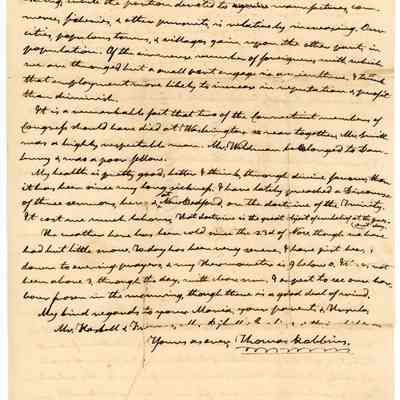 while the portion devoted to manufactures, com-
merce, fisheries, & other pursuits is relatively increasing. Our
cities, populous towns, & villages gain upon the other parts in
population. Of the immense number of foreigners with which
we are thronged but a small part engage in agriculture. I think
that employment more likely to increase in reputation & profit
than diminish.
It is a remarkable fact that two of the Connecticut members of
Congress should have died at Washington so near together. Mr. Smith
was a highly respectable man. Mr. Wildman belonged to Dan-
bury & was a poor fellow.
My health is pretty good, better I think through divine favour, than
it has been since my long sickness. I have lately preached a Discourse
of three sermons, here & at New Bedford, on the doctrine of the Trinity.
It cost me much labour. That doctrine is the great object of
The weather here has been cold since the 23d of Nov. though we have
had but little snow. Today has been very severe, I have just been
down to evening prayers, & my Thermometer is 9 below 0. It has not
been above 3, through the day, with clear sun. I expect to see our har-
bour frozen in the morning, though there is a good deal of wind.
My kind regards to yours Maria, your parents, &
Mr. Haskell &
Yours as ever, Thomas Robbins.